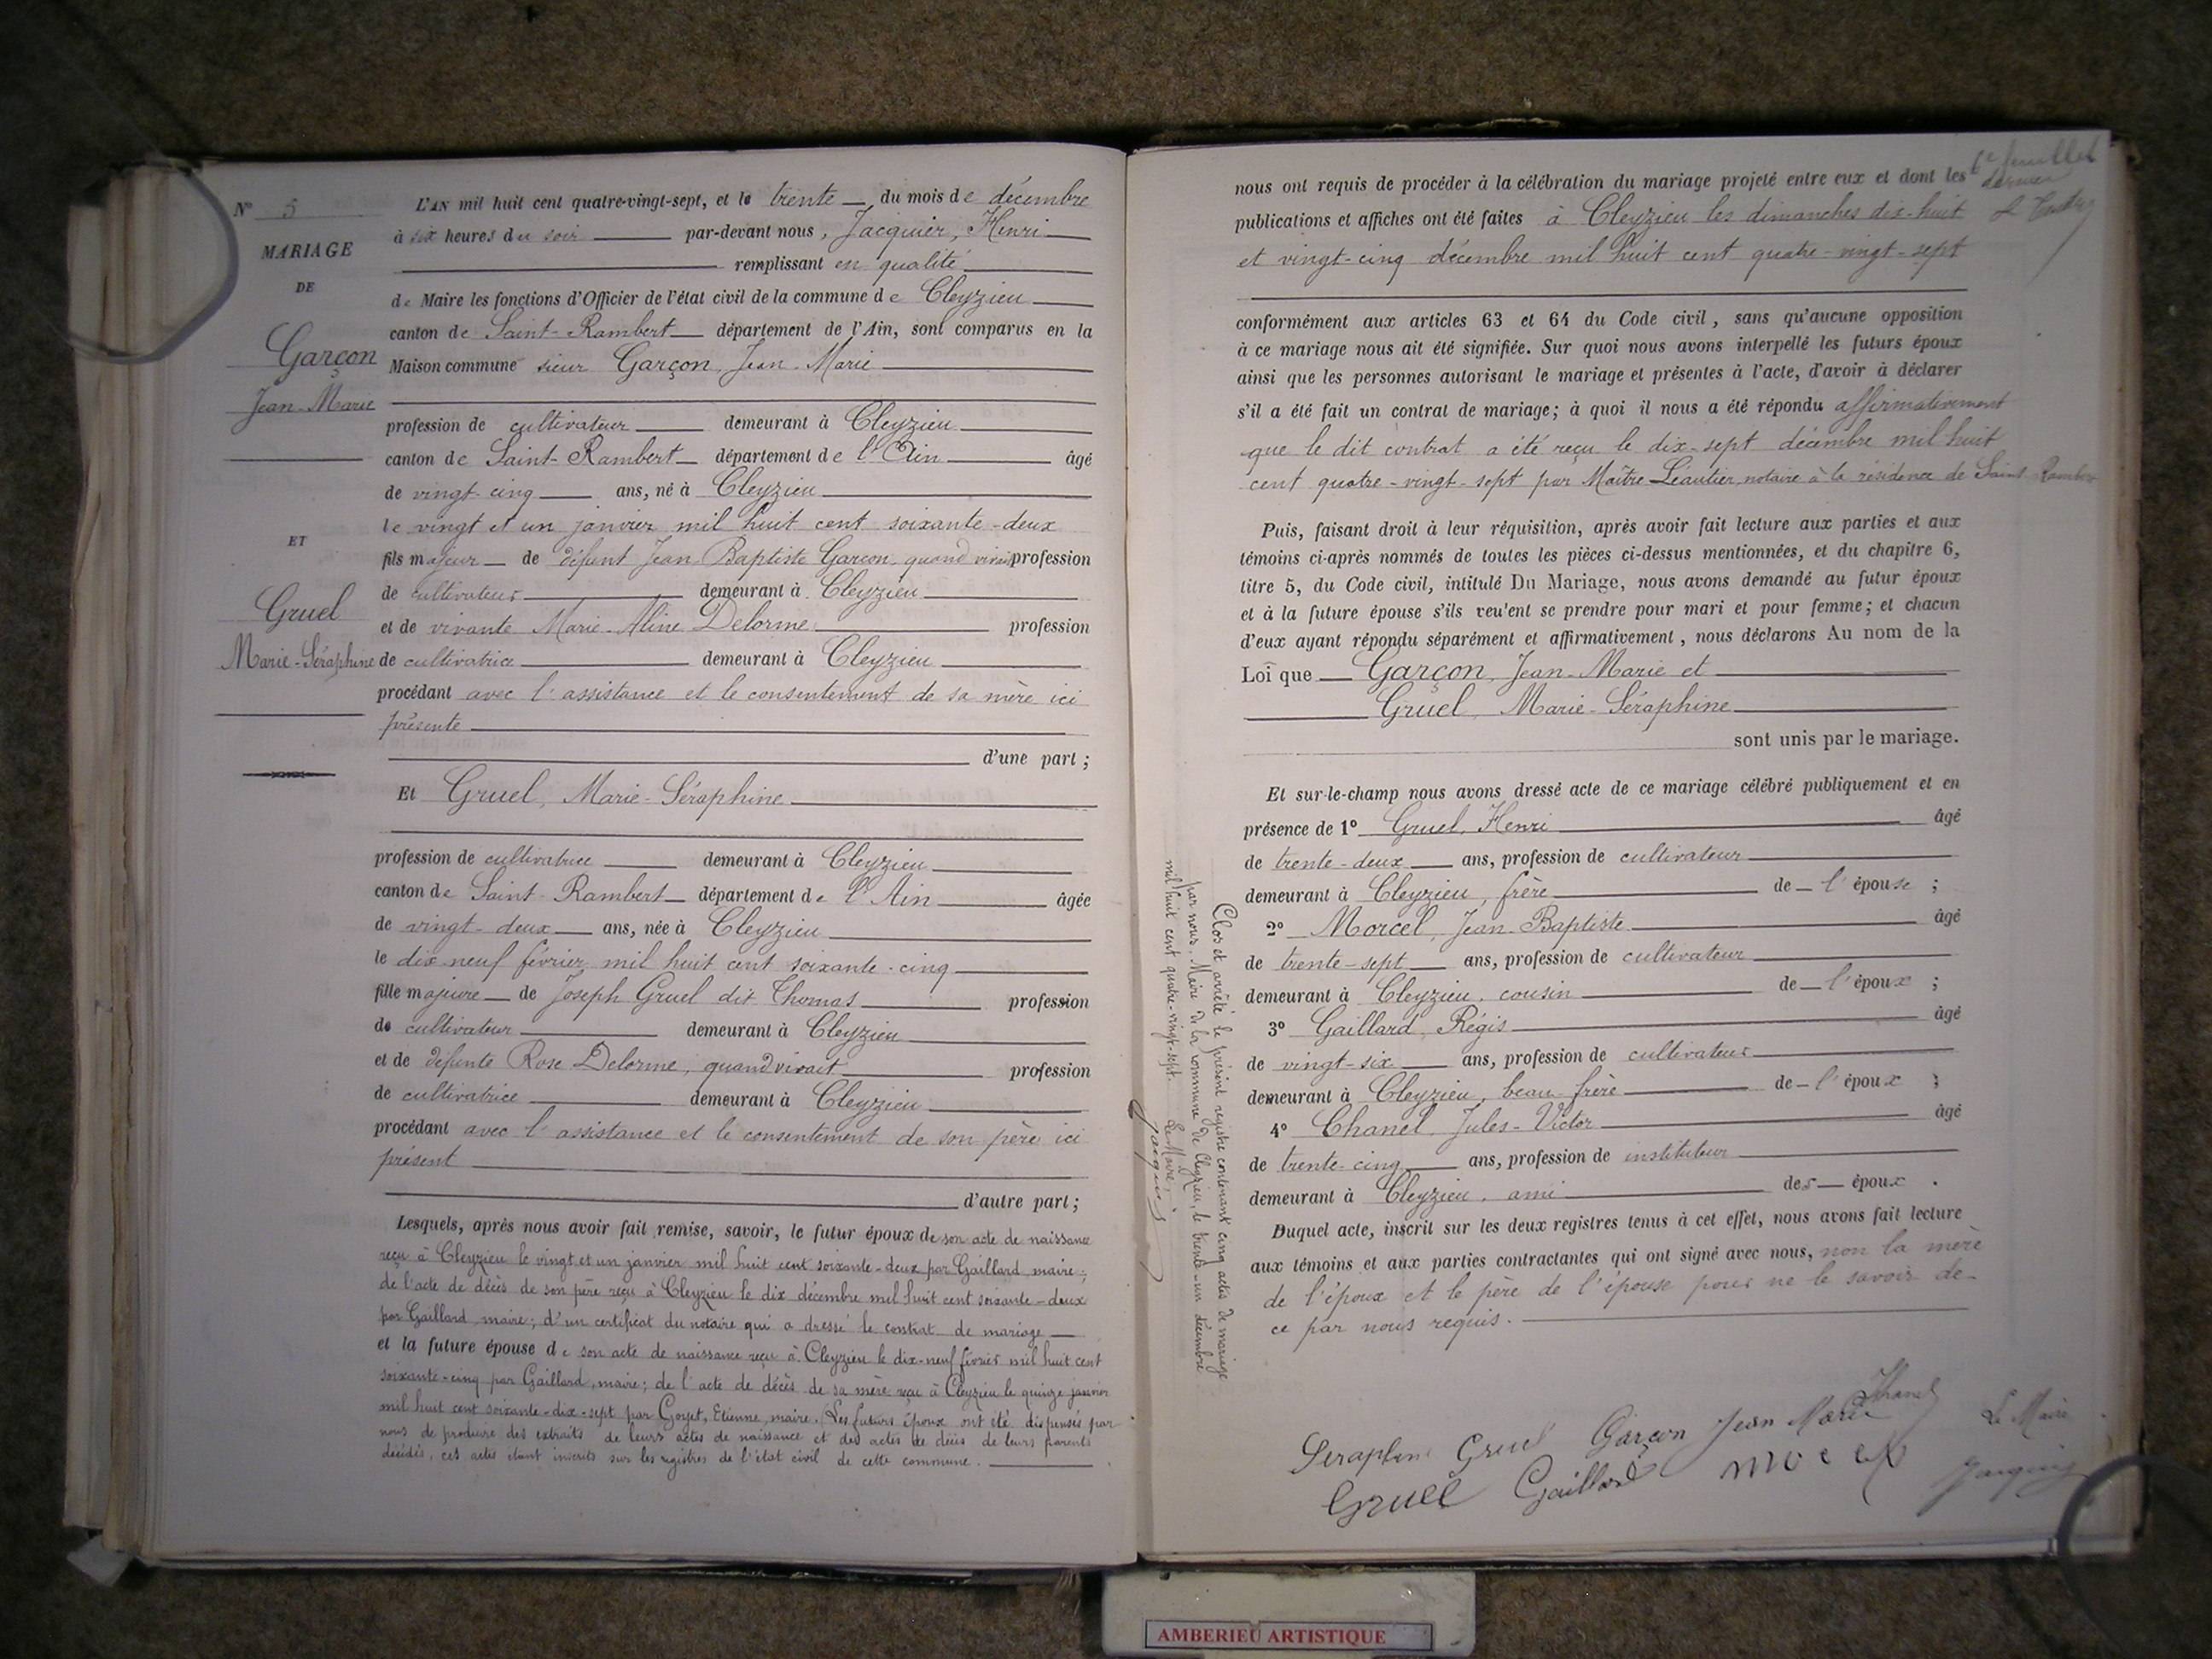 N° 5
MARIAGE
DE
Garçon
Jean-Marie
ET
Gruel
Marie-Séraphine
L'AN mil huit cent quatre-vingt-sept, et le trente du mois de décembre
à six heures du soir par-devant nous, Jacquier, Henri
remplissant en qualité
de Maire les fonctions d'Officier de l'état civil de la commune de Cleyzieu
canton de Saint-Rambert département de l'Ain, sont comparus en la
Maison commune sieur Garçon, Jean-Marie
profession de cultivateur demeurant à Cleyzieu
canton de Saint-Rambert département de l'Ain âgé
de vingt-cinq ans, né à Cleyzieu
le vingt et un janvier mil huit cent soixante-deux
fils majeur de défunt Jean-Baptiste Garçon, quand vivait profession
de cultivateur demeurant à Cleyzieu
et de vivante Marie-Aline Delorme profession
de cultivatrice demeurant à Cleyzieu
procédant avec l'assistance et le consentement de sa mère ici
présente
d'une part ;
Et Gruel, Marie-Séraphine
profession de cultivatrice demeurant à Cleyzieu
canton de Saint-Rambert département de l'Ain âgée
de vingt-deux ans, née à Cleyzieu
le dix-neuf février mil huit cent soixante-cinq
fille majeure de Joseph Gruel dit Thomas profession
de cultivateur demeurant à Cleyzieu
et de défunte Rose Delorme, quand vivait profession
de cultivatrice demeurant à Cleyzieu
procédant avec l'assistance et le consentement de son père ici
présent
d'autre part ;
Lesquels, après nous avoir fait remise, savoir, le futur époux de son acte de naissance
reçu à Cleyzieu le vingt et un janvier mil huit cent soixante-deux par Gaillard maire ;
de l'acte de décès de son père reçu à Cleyzieu le dix décembre mil huit cent soixante-deux
par Gaillard maire ; d'un certificat du notaire qui a dressé le contrat de mariage
et la future épouse de son acte de naissance reçu à Cleyzieu le dix-neuf février mil huit cent
soixante-cinq par Gaillard, maire ; de l'acte de décès de sa mère reçu à Cleyzieu le quinze janvier
mil huit cent soixante-dix-sept par Goyet, Etienne, maire. (Les futurs époux ont été dispensés par
nous de produire des extraits de leurs actes de naissance et des actes de décès de leurs parents
décédés, ces actes étant inscrits sur les registres de l'état civil de cette commune.
6e feuillet
dernier
nous ont requis de procéder à la célébration du mariage projeté entre eux et dont les
publications et affiches ont été faites à Cleyzieu les dimanches dix-huit
et vingt-cinq décembre mil huit cent quatre-vingt-sept
conformément aux articles 63 et 64 du Code civil, sans qu'aucune opposition
à ce mariage nous ait été signifiée. Sur quoi nous avons interpellé les futurs époux
ainsi que les personnes autorisant le mariage et présentes à l'acte, d'avoir à déclarer
s'il a été fait un contrat de mariage ; à quoi il nous a été répondu affirmativement
que le dit contrat a été reçu le dix-sept décembre mil huit
cent quatre-vingt-sept par Maître Léautier, notaire à la résidence de Saint-Rambert
Puis, faisant droit à leur réquisition, après avoir fait lecture aux parties et aux
témoins ci-après nommés de toutes les pièces ci-dessus mentionnées, et du chapitre 6,
titre 5, du Code civil, intitulé Du Mariage, nous avons demandé au futur époux
et à la future épouse s'ils veu'ent se prendre pour mari et pour femme ; et chacun
d'eux ayant répondu séparément et affirmativement, nous déclarons Au nom de la
Loi que Garçon, Jean-Marie et
Gruel, Marie-Séraphine
sont unis par le mariage.
Et sur-le-champ nous avons dressé acte de ce mariage célébré publiquement et en
présence de 1° Gruel, Henri âgé
de trente-deux ans, profession de cultivateur
demeurant à Cleyzieu, frère de l'épouse ;
2° Morcel, Jean-Baptiste âgé
de trente-sept ans, profession de cultivateur
demeurant à Cleyzieu, cousin de l'époux ;
3° Gaillard, Régis âgé
de vingt-six ans, profession de cultivateur
demeurant à Cleyzieu, beau-frère de l'époux ;
4° Chanel, Jules-Victor âgé
de trente-cinq ans, profession de instituteur
demeurant à Cleyzieu, ami des époux.
Duquel acte, inscrit sur les deux registres tenus à cet effet, nous avons fait lecture
aux témoins et aux parties contractantes qui ont signé avec nous, non la mère
de l'époux et le père de l'épouse pour ne le savoir de-
ce par nous requis.
Clos et arrêté le présent registre contenant cinq actes de mariage
par nous, Maire de la commune de Cleyzieu, le trente-un décembre
mil huit cent quatre-vingt-sept. Le Maire,
Jacquier
Chanel
Seraphine Gruel Garçon Jean Marie Le Maire
Gruel Gaillard Morcel Jacquier
AMBERIEU ARTISTIQUE